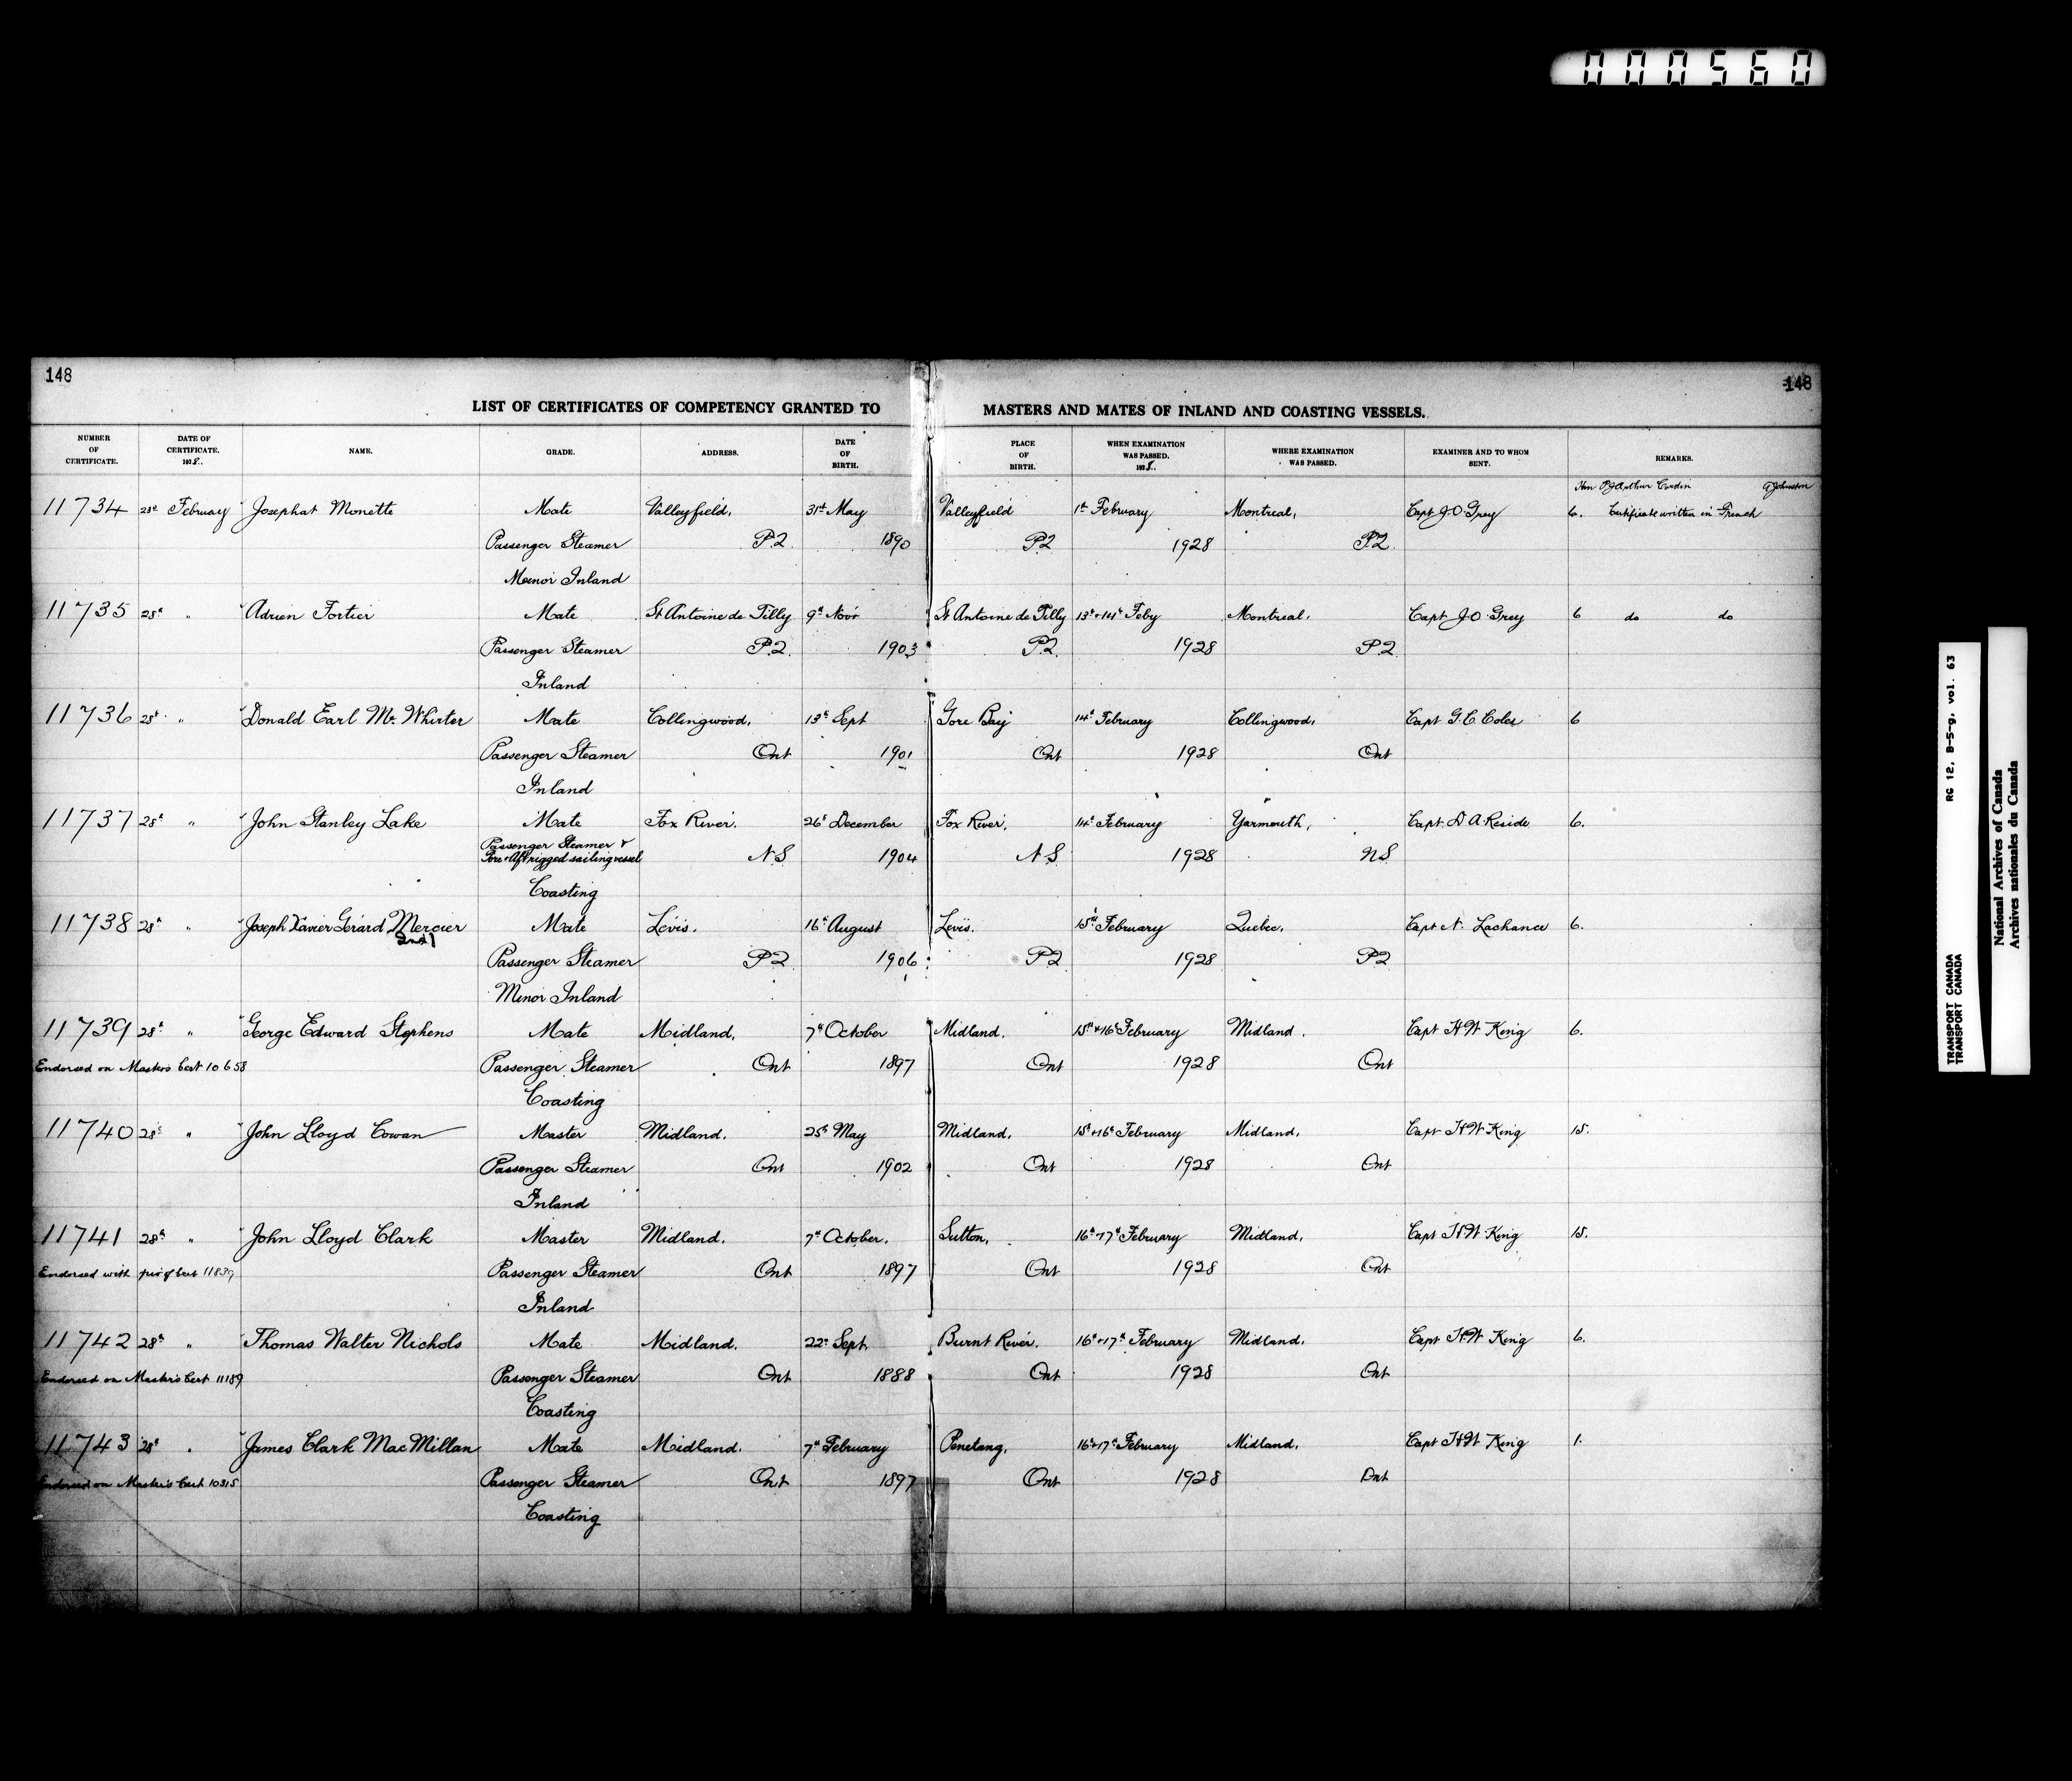 000560
148
148
LIST OF CERTIFICATES OF COMPETENCY GRANTED TO MASTERS AND MATES OF INLAND AND COASTING VESSELS.
NUMBER OF CERTIFICATE. DATE OF CERTIFICATE. 1928. NAME. GRADE. ADDRESS. DATE OF BIRTH. PLACE OF BIRTH. WHEN EXAMINATION WAS PASSED. 1928. WHERE EXAMINATION WAS PASSED. EXAMINER AND TO WHOM SENT. REMARKS.
Hon P J Arthur Cardin A Johnston
11734 28th February Josephat Monette Mate Valleyfield, 31st May Valleyfield 1st February Montreal, Capt J.O Grey 6. Certificate written in French
Passenger Steamer P.Q. 1890 P.Q 1928 P.Q.
Minor Inland
11735 28th " Adrien Fortier Mate St Antoine de Tilly 9th Novr St Antoine de Tilly 13th & 14th Feby Montreal. Capt J.O Grey 6 do do
Passenger Steamer P.Q. 1903 P.Q. 1928 P.Q
Inland
11736 28th " Donald Earl McWhirter Mate Collingwood, 13th Sept Gore Bay 14th February Collingwood, Capt G.C. Coles 6
Passenger Steamer Ont 1901 Ont 1928 Ont
Inland
11737 28th " John Stanley Lake Mate Fox River. 26th December Fox River, 14th February Yarmouth, Capt. D A Reside 6.
Passenger Steamer &
Fore & Aft rigged sailing vessel N.S 1904 N.S 1928 N.S
Coasting
11738 28th " Joseph Xavier Gérard Mercier Mate Lévis. 16th August Lévis. 15th February Quebec, Capt N. Lachance 6.
2nd
Passenger Steamer P.Q 1906 P.Q 1928 P.Q
Minor Inland
11739 28th " George Edward Stephens Mate Midland, 7th October Midland. 15th & 16th February Midland. Capt H W King 6.
Endorsed on Masters Cert 10658 Passenger Steamer Ont 1897 Ont 1928 Ont
Coasting
11740 28th " John Lloyd Cowan Master Midland. 25th May Midland, 15th & 16th February Midland, Capt H W King 15.
Passenger Steamer Ont 1902 Ont 1928 Ont
Inland
11741 28th " John Lloyd Clark Master Midland. 7th October. Sutton, 16th & 17th February Midland, Capt H W King 15.
Endorsed with Cert 11839 Passenger Steamer Ont 1897 Ont 1928 Ont
Inland
11742 28th " Thomas Walter Nichols Mate Midland. 22nd Sept. Burnt River. 16th & 17th February Midland. Capt H W King 6.
Endorsed on Master's Cert 11189 Passenger Steamer Ont 1888 Ont 1928 Ont
Coasting
11743 28th " James Clark MacMillan Mate Midland. 7th February Penetang, 16th & 17th February Midland. Capt H W King 1.
Endorsed on Master's Cert 10315 Passenger Steamer Ont 1897 Ont 1928 Ont
Coasting
TRANSPORT CANADA RG 12, B-5-g, vol. 63
TRANSPORT CANADA
National Archives of Canada
Archives nationales du Canada